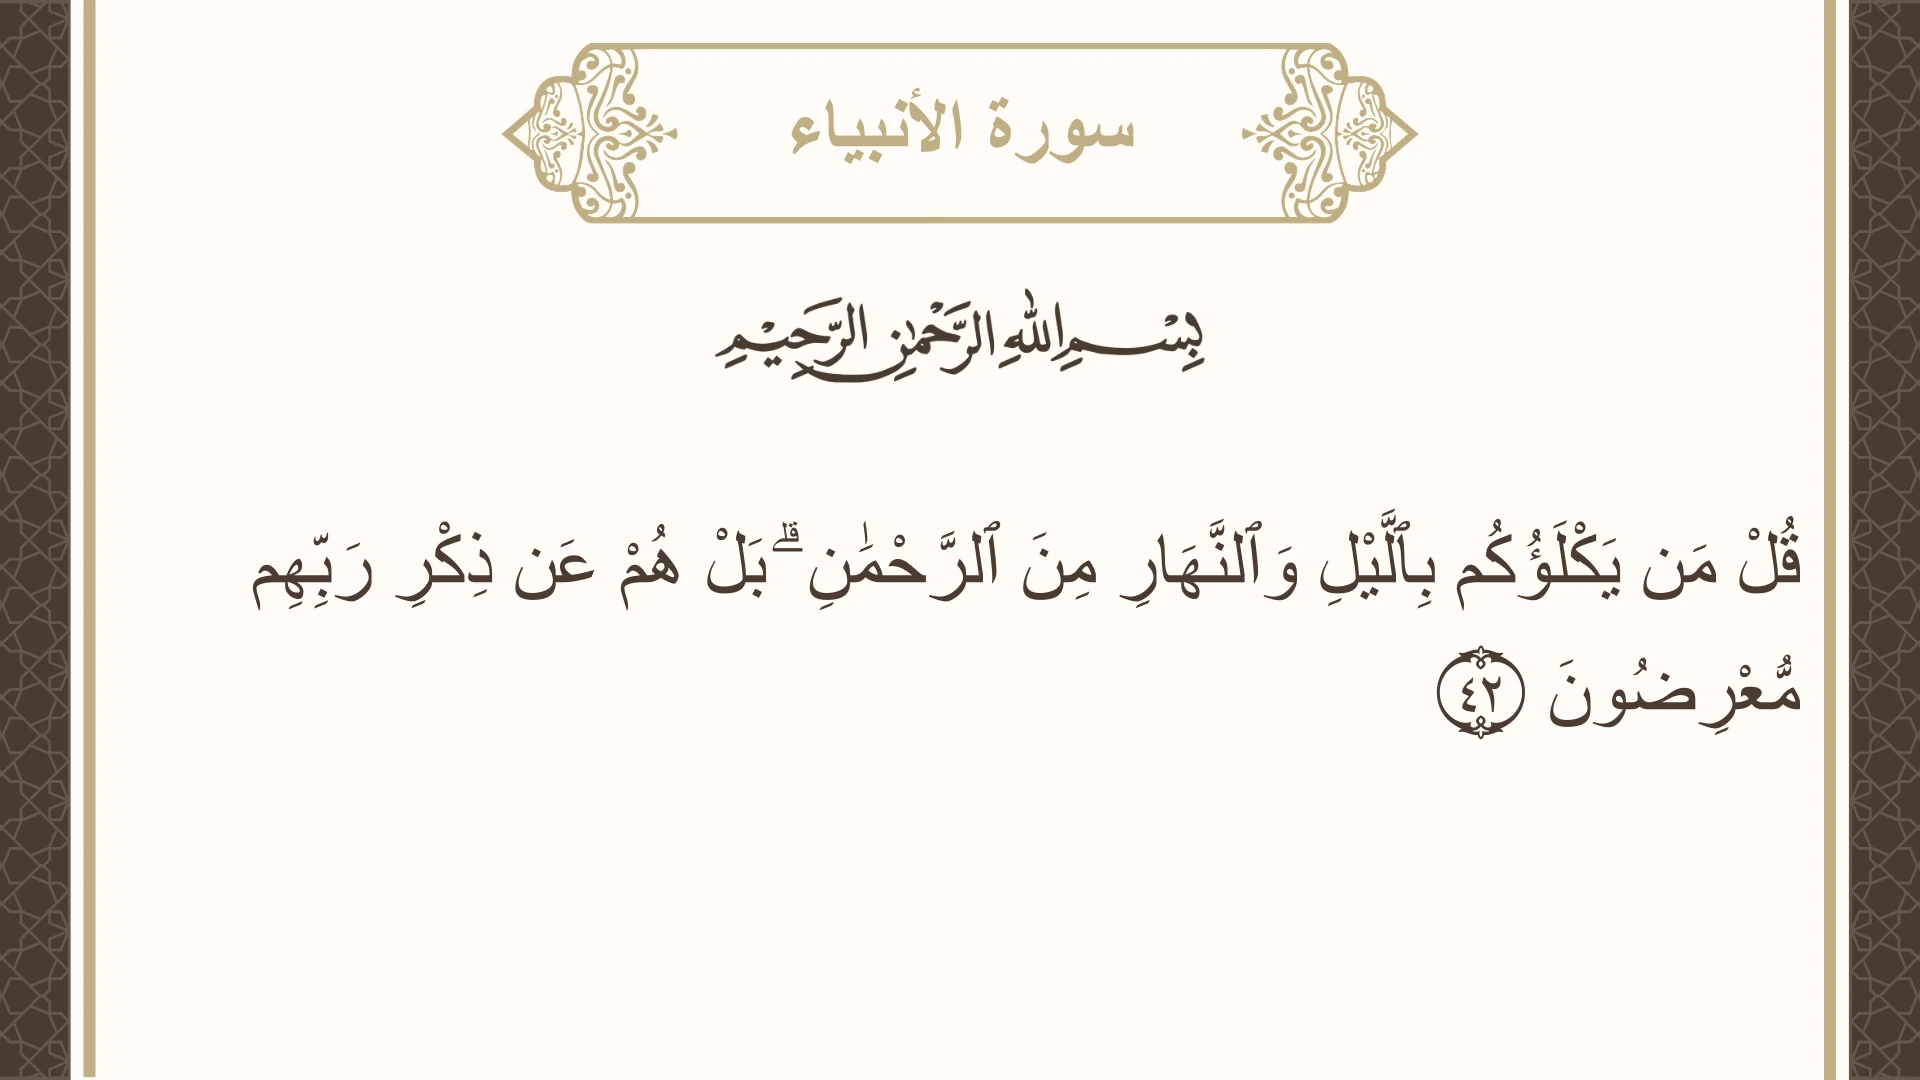 سورة الأنبياء
بِسْمِ اللهِ الرَّحْمٰنِ الرَّحِيْمِ
قُلْ مَن يَكْلَؤُكُم بِٱلَّيْلِ وَٱلنَّهَارِ مِنَ ٱلرَّحْمَٰنِ ۗ بَلْ هُمْ عَن ذِكْرِ رَبِّهِم
مُّعْرِضُونَ ٤٢